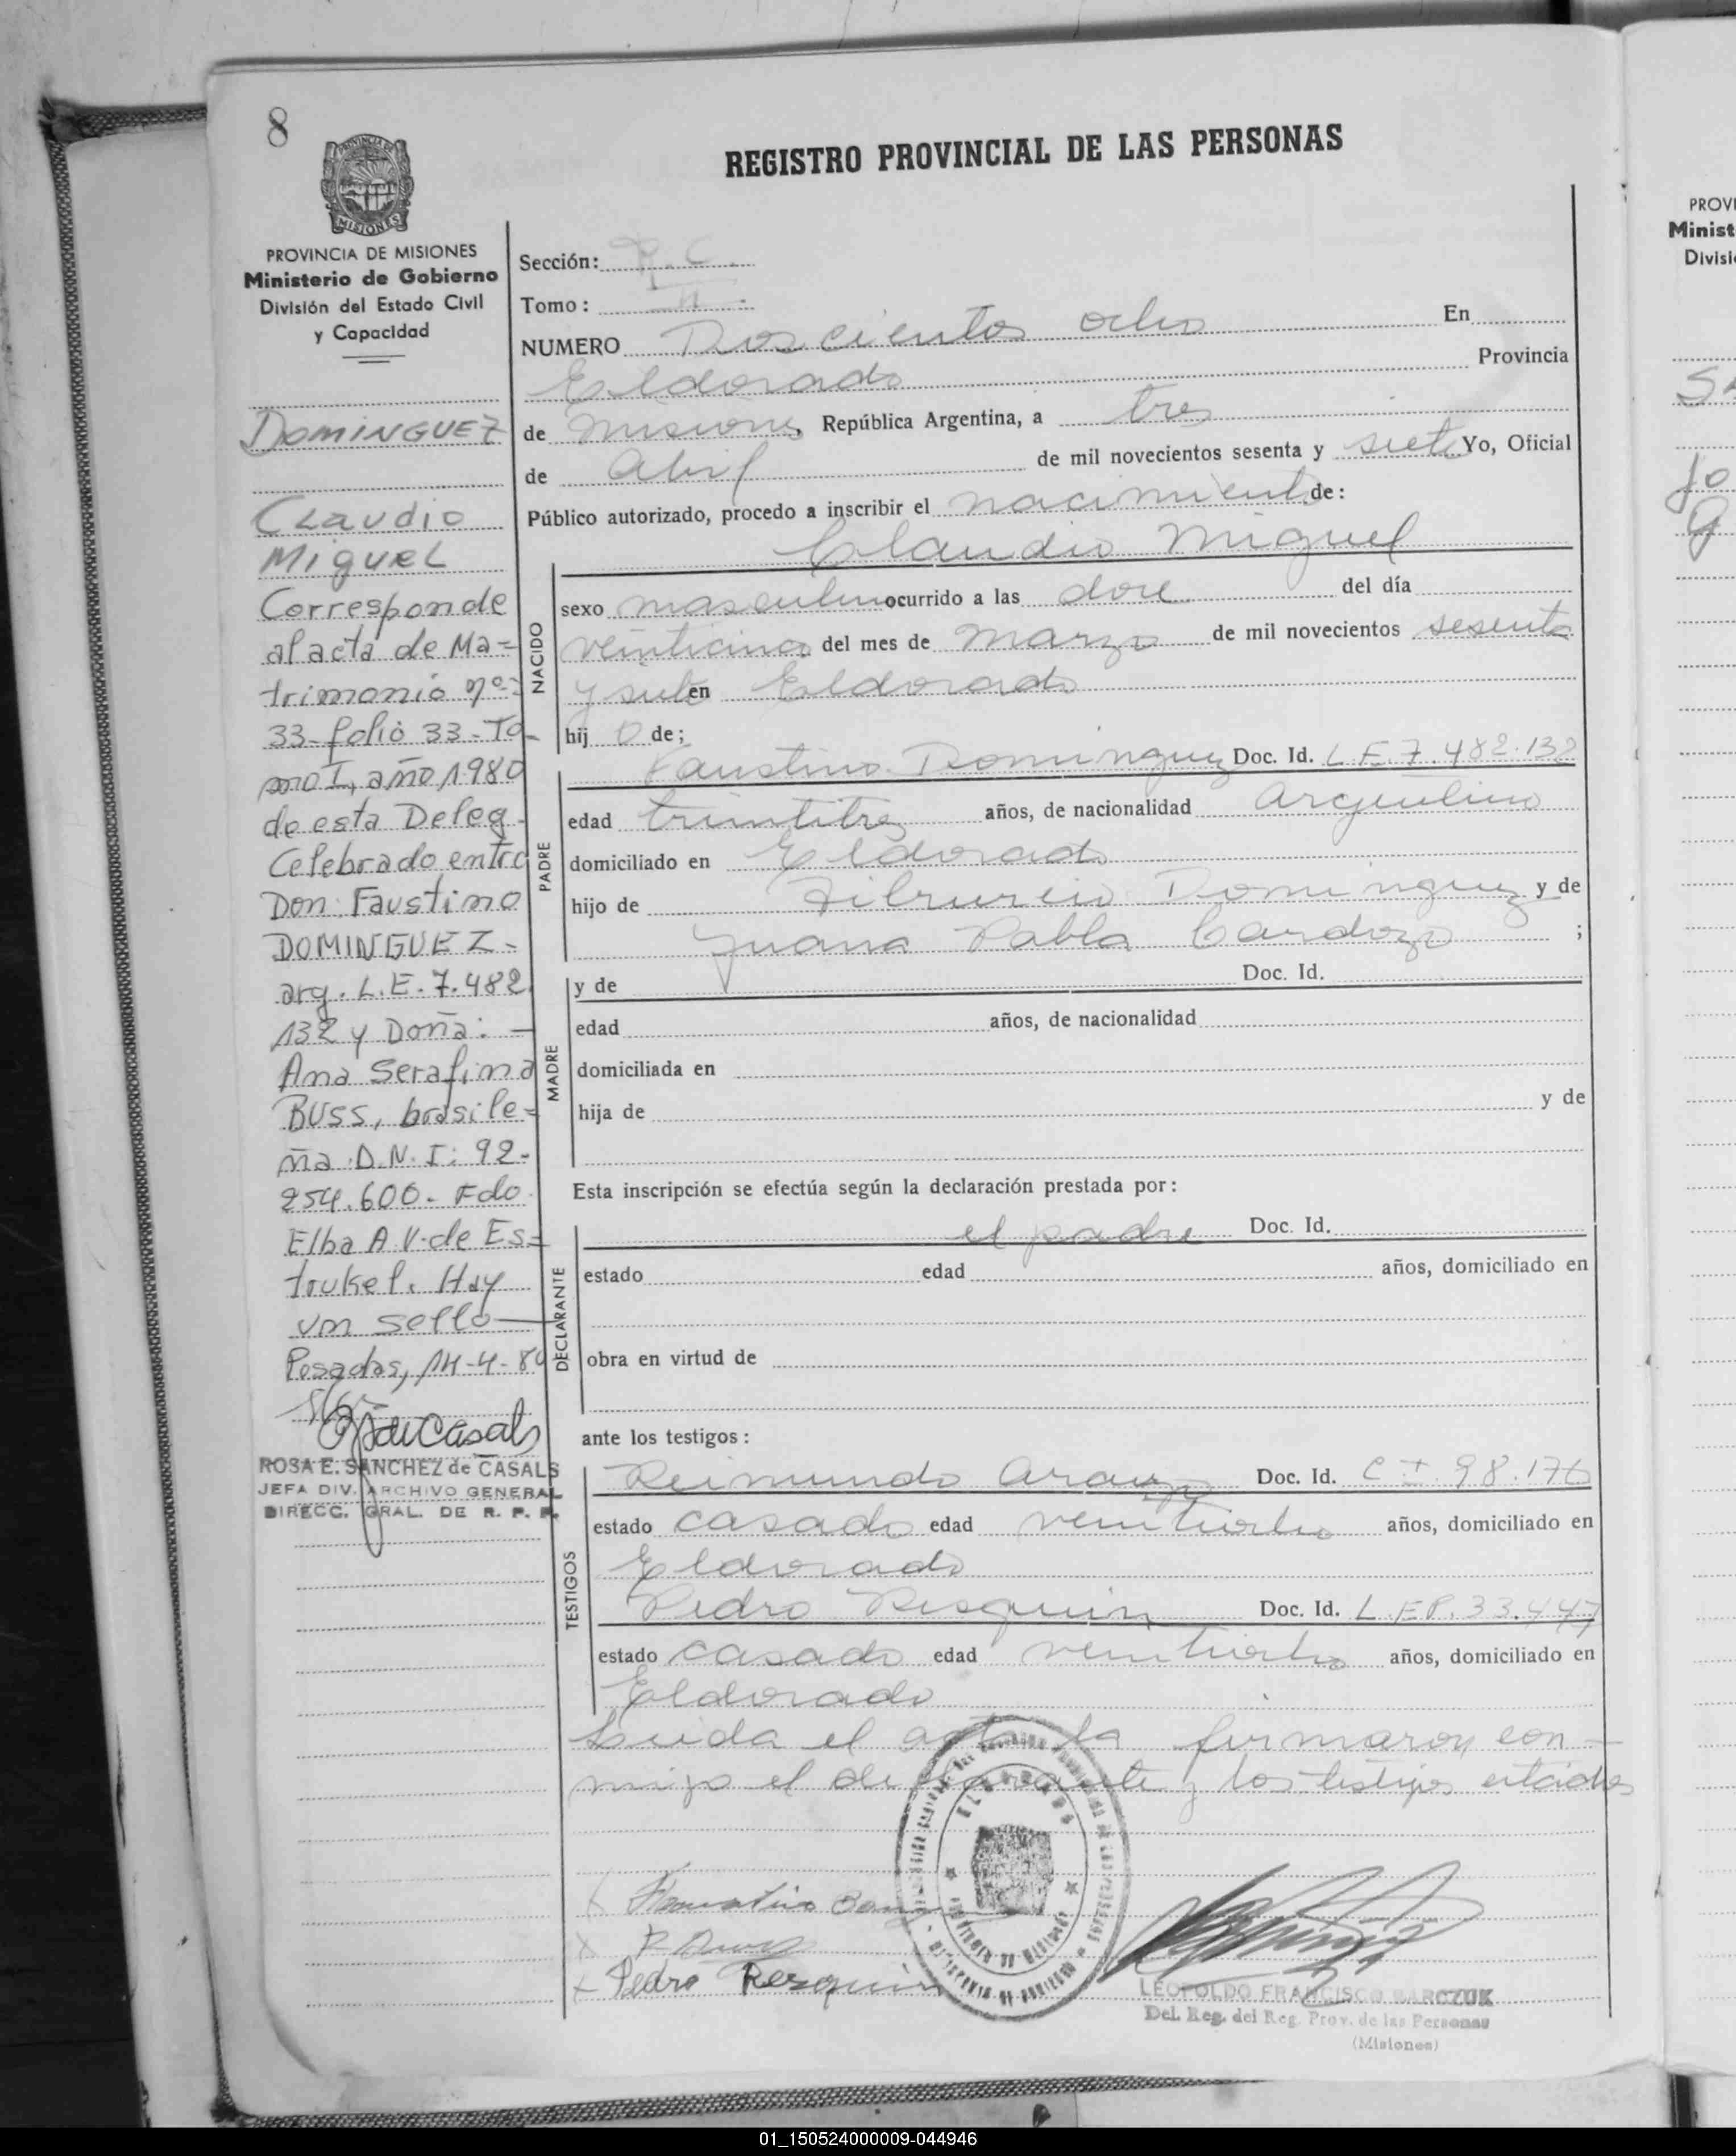 8
REGISTRO PROVINCIAL DE LAS PERSONAS
PROVINCIA DE MISIONES
MISIONES
PROVINCIA DE MISIONES
Ministerio de Gobierno
División del Estado Civil
y Capacidad
DOMINGUEZ
Claudio
Miguel
Corresponde
al acta de Ma=
trimonio nº:
33-folio 33-To-
mo I, año 1980
de esta Deleg.
Celebrado entre
Don: Faustino
DOMINGUEZ-
arg. L.E. 7.482.
132 y Doña: —
Ana Serafina
BUSS, brasile=
ña D.N.I: 92-
254.600- Fdo.
Elba A V. de Es=
trukel. Hay
un sello—
Posadas, 14-4-80
ROSA E. SANCHEZ de CASALS
JEFA DIV. ARCHIVO GENERAL
DIRECC. GRAL. DE R. P. P.
Sección: R.C.
Tomo: II
NUMERO Doscientos ocho En
Eldorado Provincia
de Misiones, República Argentina, a tres
de Abril de mil novecientos sesenta y siete Yo, Oficial
Público autorizado, procedo a inscribir el nacimiento de:
Claudio Miguel
NACIDO
sexo masculino ocurrido a las doce del día
veinticinco del mes de Marzo de mil novecientos sesenta
y siete en Eldorado
hij o de;
PADRE
Faustino Dominguez Doc. Id. L.E. 7.482.132
edad treintitres años, de nacionalidad Argentino
domiciliado en Eldorado
hijo de Dominguez y de
Juana Pabla Cardozo ;
MADRE
y de Doc. Id.
edad años, de nacionalidad
domiciliada en
hija de y de
Esta inscripción se efectúa según la declaración prestada por:
DECLARANTE
el padre Doc. Id.
estado edad años, domiciliado en
obra en virtud de
ante los testigos:
TESTIGOS
Reimundo Araujo Doc. Id. C I. 98.176
estado casado edad veintiocho años, domiciliado en
Eldorado
Pedro Resquin Doc. Id. L.E.P. 33.447
estado casado edad veintiocho años, domiciliado en
Eldorado
Leida el acta la firmaron con-
migo el declarante y los testigos citados
ELDORADO
Pedro Resquin
LEOPOLDO FRANCISCO BARCZUK
Del. Reg. del Reg. Prov. de las Personas
(Misiones)
PROVI
Minist
Divisi
01_150524000009-044946